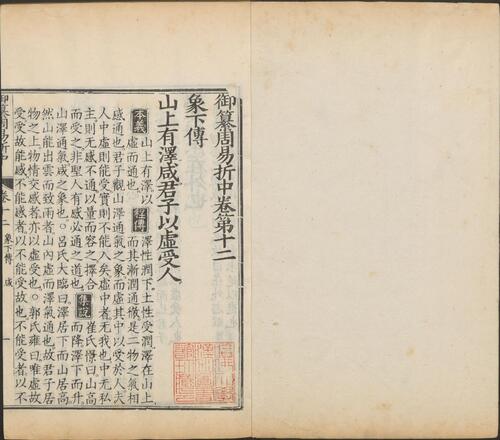 御纂周易折中卷第十二
象下傳
山上有澤咸君子以虛受人
本義 山上有澤以
虛而通也
程傳 澤性潤下土性受潤澤在山上
而其漸潤通徹是二物之氣相
感通也君子觀山澤通氣之象而虛其中以受於人夫
人中虛則能受實則不能入矣虛中者无我也中无私
主則无感不通以量而容之擇合
而受之非聖人有感必通之道也
集說 崔氏憬曰山高
而降澤下而升
山澤通氣咸之象也。呂氏大臨曰澤居下而山居高
然山能出雲而致雨者山內虛而澤氣通也故君子居
物之上物情交感者亦以虛受也。郭氏雍曰唯虛故
受受故能感不能感者以不能受故也不能受者以不
御纂周易折中 卷十二 象下傳 咸 一